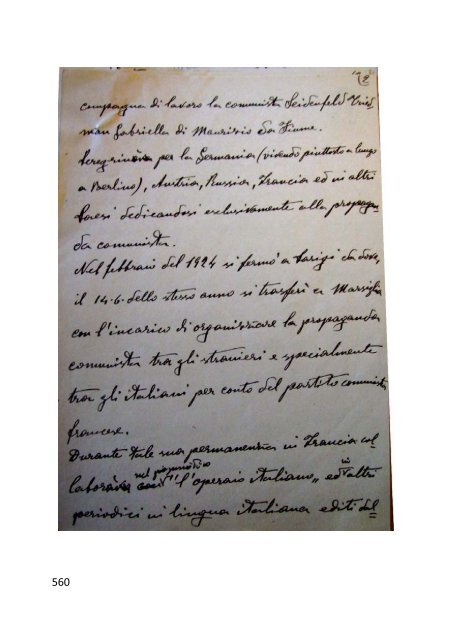 2
compagna di lavoro la comunista Seidenfeld
man Gabriella di Maurizio da Fiume.
Peregrinava per la Germania (vivendo piuttosto a lungo
a Berlino), Austria, Russia, Francia ed in altri
Paesi dedicandosi esclusivamente alla propagan
da comunista.
Nel febbraio del 1924 si fermò a Parigi da dove,
il 14.6. dello stesso anno si trasferì a Marsiglia
con l'incarico di organizzare la propaganda
comunista tra gli stranieri e specialmente
tra gli italiani per conto del partito comunista
francese.
Durante tale sua permanenza in Francia col
nel
laborava "l'operaio italiano„ ed in altri
periodici in lingua italiana editi dal
560